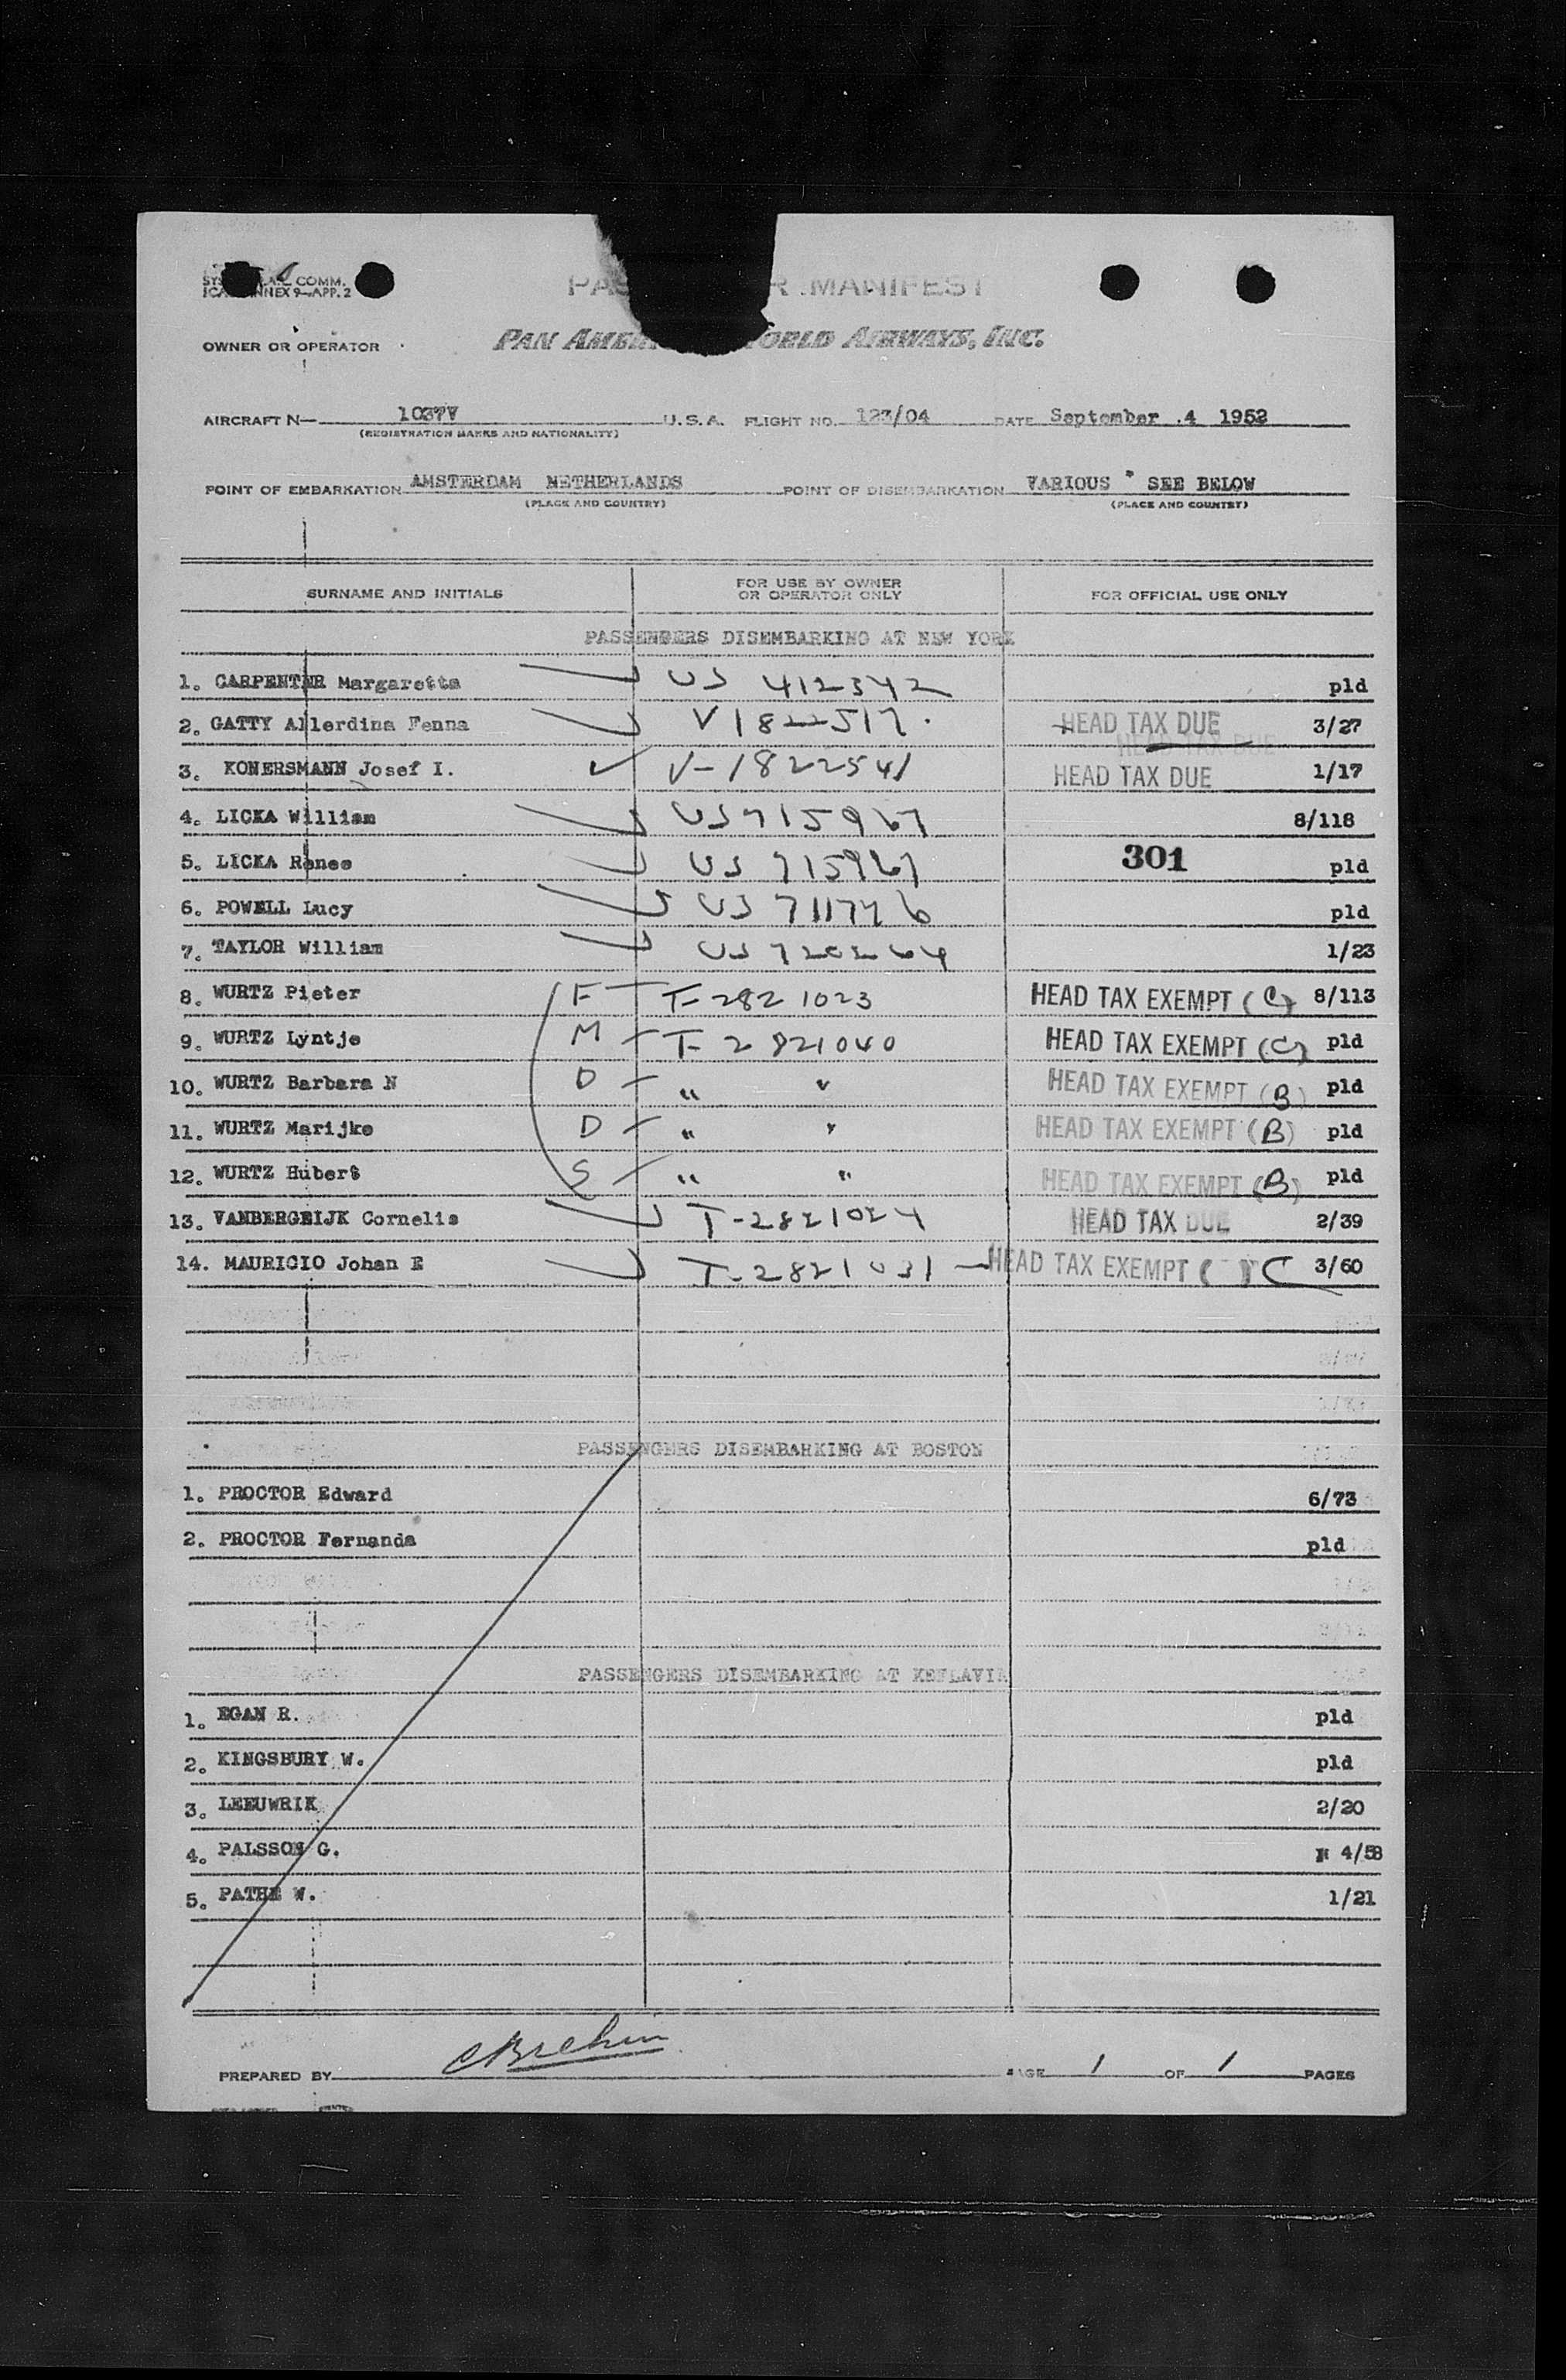 COMM.
ANNEX 9—APP. 2
MANIFEST
OWNER OR OPERATOR
PAN WORLD AIRWAYS, INC.
AIRCRAFT N— 1037V U.S.A. FLIGHT NO. 123/04 DATE September .4 1952
(REGISTRATION MARKS AND NATIONALITY)
POINT OF EMBARKATION AMSTERDAM NETHERLANDS POINT OF DISEMBARKATION VARIOUS " SEE BELOW
(PLACE AND COUNTRY) (PLACE AND COUNTRY)
SURNAME AND INITIALS FOR USE BY OWNER OR OPERATOR ONLY FOR OFFICIAL USE ONLY
PASSENGERS DISEMBARKING AT NEW YORK
1. CARPENTER Margaretta US 412342 pld
2. GATTY Allerdina Fenna V1822517. HEAD TAX DUE 3/27
HEAD TAX DUE
3. KONERSMANN Josef I. V-1822541 HEAD TAX DUE 1/17
4. LICKA William US715967 8/118
5. LICKA Renee US 715967 301 pld
6. POWELL Lucy US 711776 pld
7. TAYLOR William US 720264 1/23
8. WURTZ Pieter F T-2821023 HEAD TAX EXEMPT (C) 8/113
9. WURTZ Lyntje M T-2821040 HEAD TAX EXEMPT (C) pld
10. WURTZ Barbara N D " " HEAD TAX EXEMPT (B) pld
11. WURTZ Marijke D " " HEAD TAX EXEMPT (B) pld
12. WURTZ Hubert S " " HEAD TAX EXEMPT (B) pld
13. VANBERGEIJK Cornelis T-2821024 HEAD TAX DUE 2/39
14. MAURICIO Johan E T-2821031 HEAD TAX EXEMPT ( ) C 3/60
PASSENGERS DISEMBARKING AT BOSTON
1. PROCTOR Edward 6/73
2. PROCTOR Fernanda pld
PASSENGERS DISEMBARKING AT KEFLAVIK
1. EGAN R. pld
2. KINGSBURY W. pld
3. LEEUWRIK 2/20
4. PALSSON G. 4/58
5. PATHE W. 1/21
PREPARED BY PAGE 1 OF 1 PAGES